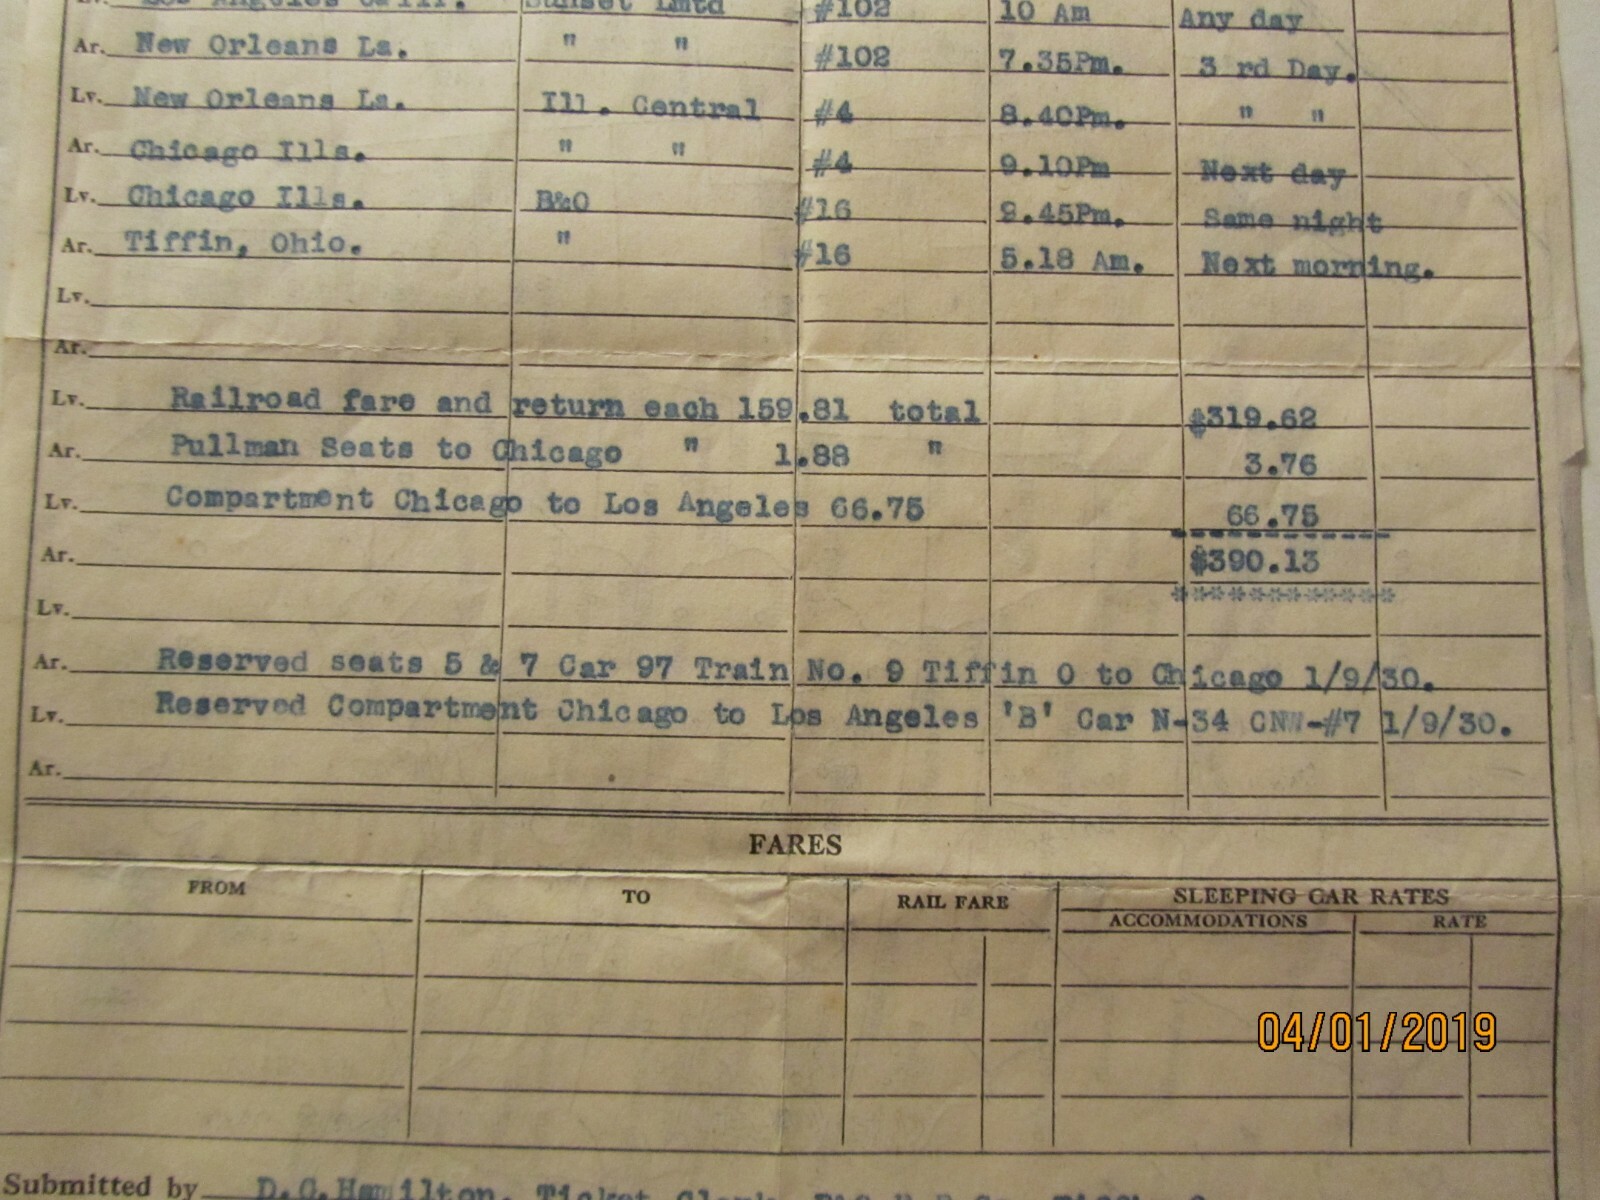 Lv. Los Angeles Calif. Sunset Lmtd #102 10 Am Any day
Ar. New Orleans La. " " #102 7.35Pm. 3 rd Day.
Lv. New Orleans La. Ill. Central #4 8.40Pm. " "
Ar. Chicago Ills. " " #4 9.10Pm Next day
Lv. Chicago Ills. B&O #16 9.45Pm. Same night
Ar. Tiffin, Ohio. " #16 5.18 Am. Next morning.
Lv.
Ar.
Lv. Railroad fare and return each 159.81 total $319.62
Ar. Pullman Seats to Chicago " 1.88 " 3.76
Lv. Compartment Chicago to Los Angeles 66.75 66.75
Ar. $390.13
Lv. ***********
Ar. Reserved seats 5 & 7 Car 97 Train No. 9 Tiffin O to Chicago 1/9/30.
Lv. Reserved Compartment Chicago to Los Angeles 'B' Car N-34 CNW-#7 1/9/30.
Ar.
FARES
FROM TO RAIL FARE SLEEPING CAR RATES
ACCOMMODATIONS RATE
04/01/2019
Submitted by D.C.Hamilton, Ticket Clerk,